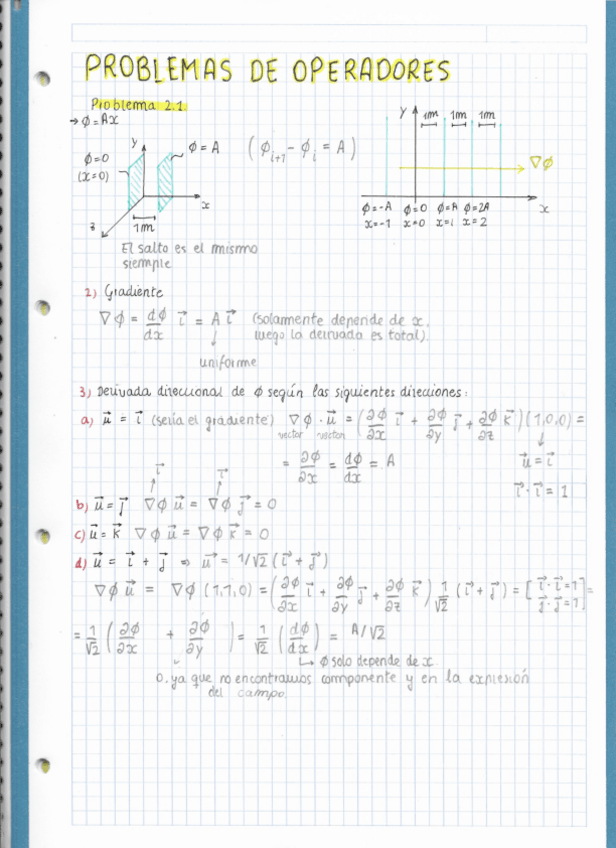 PROBLEMAS DE OPERADORES
Problema 2.1.
→ φ = Ax
φ=0
(x=0)
y
φ = A
( φᵢ₊₁ - φᵢ = A )
x
z
1m
y
1m 1m 1m
∇φ
φ=-A φ=0 φ=A φ=2A
x=-1 x=0 x=1 x=2
x
El salto es el mismo
siempre
2) Gradiente
∇φ = dφ/dx i⃗ = A i⃗ (solamente depende de x,
luego la derivada es total).
↓
uniforme
3) Derivada direccional de φ según las siguientes direcciones:
a) u⃗ = i⃗ (sería el gradiente) ∇φ · u⃗ = (∂φ/∂x i⃗ + ∂φ/∂y j⃗ + ∂φ/∂z k⃗)(1,0,0) =
vector vector
↓
= ∂φ/∂x = dφ/dx = A
u⃗ = i⃗
i⃗ · i⃗ = 1
i⃗ i⃗
↑ ↑
b) u⃗ = j⃗ ∇φ u⃗ = ∇φ j⃗ = 0
c) u⃗ = k⃗ ∇φ u⃗ = ∇φ k⃗ = 0
d) u⃗ = i⃗ + j⃗ ⇒ u⃗ = 1/√2 (i⃗ + j⃗)
∇φ u⃗ = ∇φ (1,1,0) = (∂φ/∂x i⃗ + ∂φ/∂y j⃗ + ∂φ/∂z k⃗) 1/√2 (i⃗ + j⃗) = [i⃗ · i⃗ = 1 j⃗ · j⃗ = 1] =
= 1/√2 (∂φ/∂x + ∂φ/∂y) = 1/√2 (dφ/dx) = A/√2
↳ φ solo depende de x.
0, ya que no encontramos componente y en la expresión
del campo.